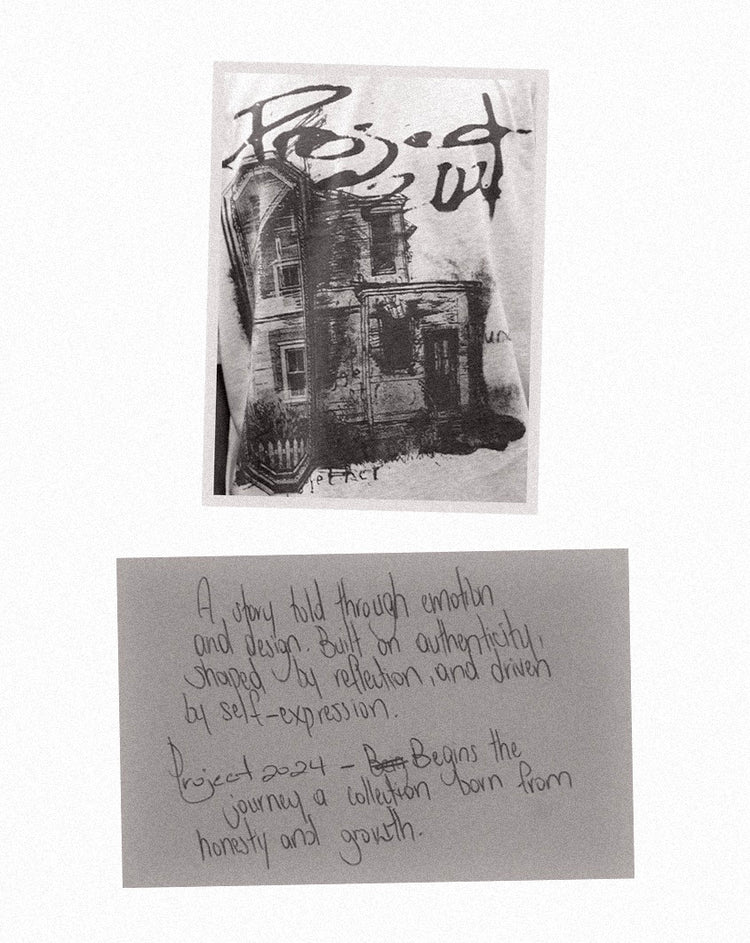 Project
un
A story told through emotion
and design. Built on authenticity,
shaped by reflection, and driven
by self-expression.
Project 2024 - Begins the
journey a collection born from
honesty and growth.